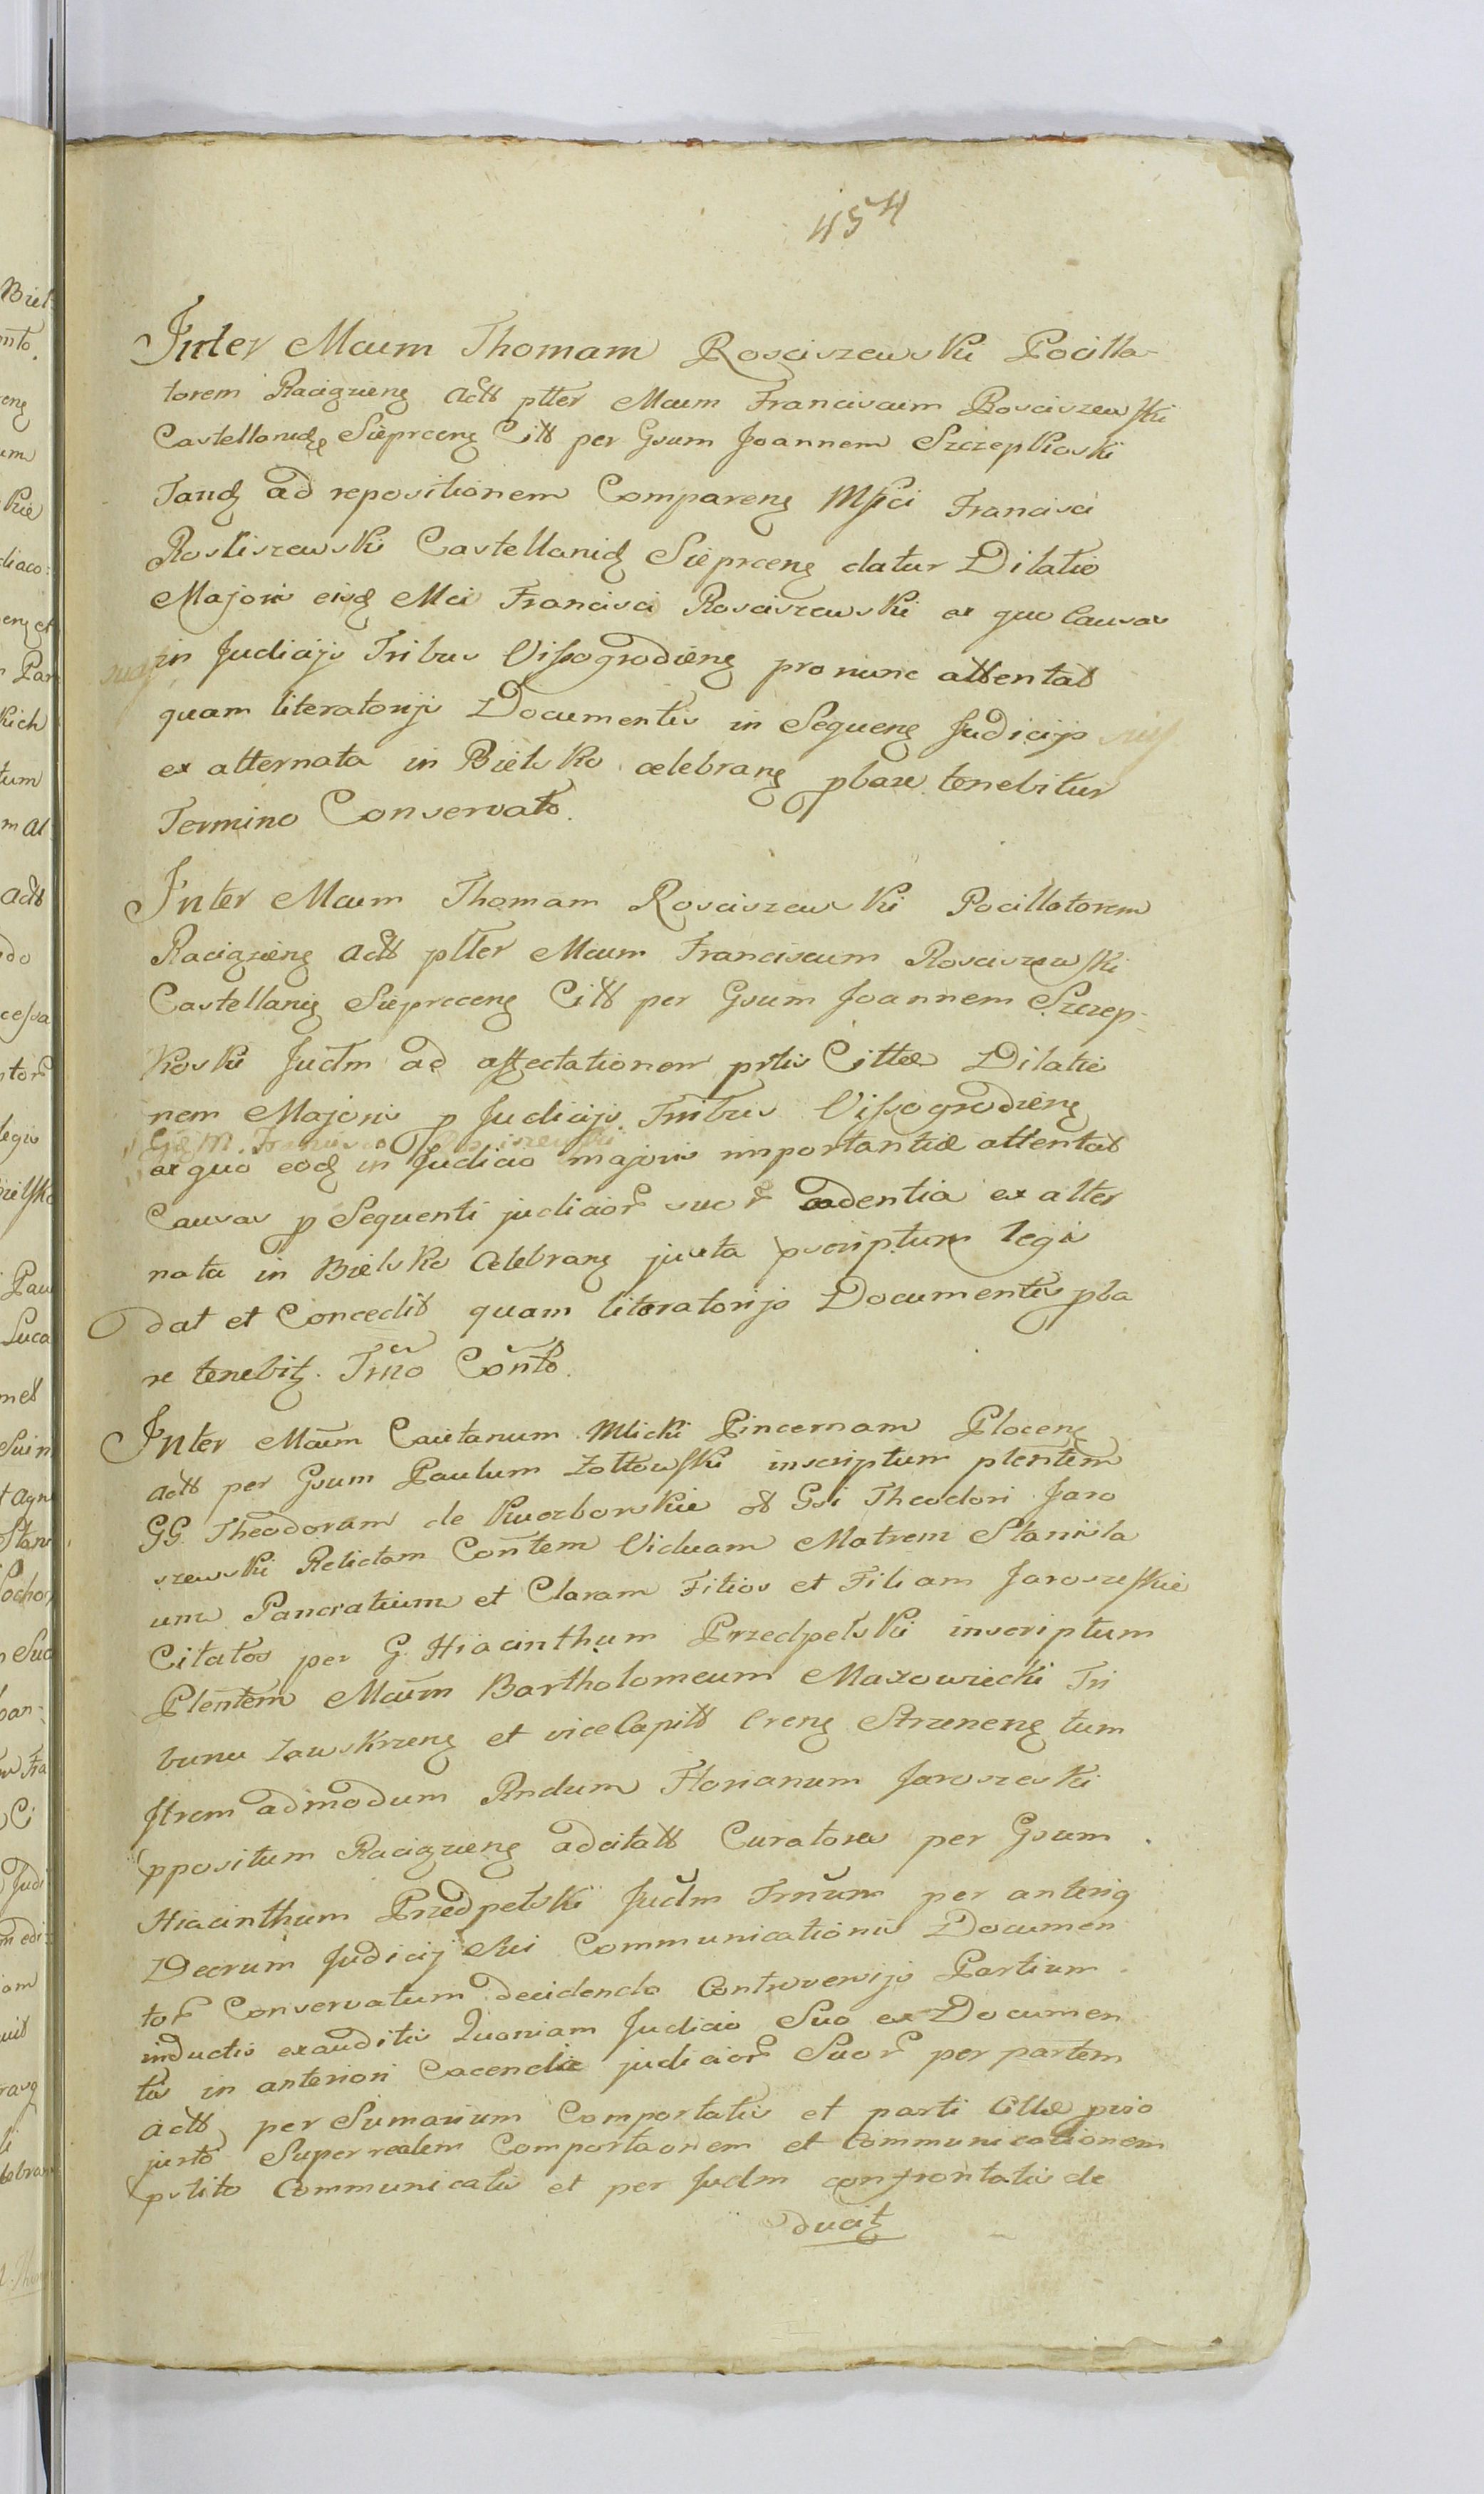 454
Inter Mcum Thomam Rosciszewski Pocilla-
torem Raciązieng Actt ptter Mcum Franciscum Rosciszewski
Castellanidę Sieprceng Citt per Gsum Joannem Szczepkoski
Tandę ad repositionem Compareng Mfici Francisci
Rosliszewski Castellanidę Sieprceng datur Dilatio
Majoris eisdę Mci Francisci Rosciszewski ex quo Causas
suas in Judicijs Tribus Vissogrodieng pro nunc attentat
quam literatorijs Documentis in Sequeng Judicijs suis
ex alternata in Bielsko celebrang pbare tenebitur
Termino Conservato.
Inter Mcum Thomam Rosciszewski Pocillatorem
Raciązieng Actt ptter Mcum Franciscum Rosciszewski
Castellanię Siepreceng Citt per Gsum Joannem Szczep-
koski Judm ad affectationem prtis Cittæ Dilatio
nem Majoris p Judicijs Tribus Vissogrodieng
G M. Francisco Rosciszewski
ex quo eodę in Judicio majoris importantiæ attentat
Causas p Sequenti judicior suor cadentia ex alter
nata in Bielsko Celebrang juxta pscriptum legis
dat et Concedit quam literatorijs Documentis pba
re tenebitz. Tmo Conto.
Inter Mcum Caietanum Mlicki Pincernam Ploceng
actt per Gsum Paulum Zołtowski inscriptum plentem
GG. Theodoram de Kuczborskie ot Gsi Theodori Jaro
szewski Relictam Contem Viduam Matrem Stanisla
um Pancratium et Claram Filios et Filiam Jaroszeskie
Citatos per G. Hiacinthum Przedpełski inscriptum
Plentem Mcum Bartholomeum Mazowiecki Tri
bunu Zawskrzeng et viceCapitt Creng Srzeneng tum
Jtrem admodum Rndum Florianum Jaroszeski
ppositum Raciązieng adcitatt Curatores per Gsum
Hiacinthum Przedpełski Judm Tmum per anterig
Decrum Judicij Sui Communicationis Documen
tor Conservatum decidendo Controversijs Partium
inductis exauditis Quoniam Judicio Suo ex Documen
tis in anteriori Cacendia judicior Suor per partem
actt per Sumarium Comportatis et parti Cittæ prio
justo Super realem Comportaonem et Communicationem
pstito Communicatis et per Judm confrontatis de
ducitz